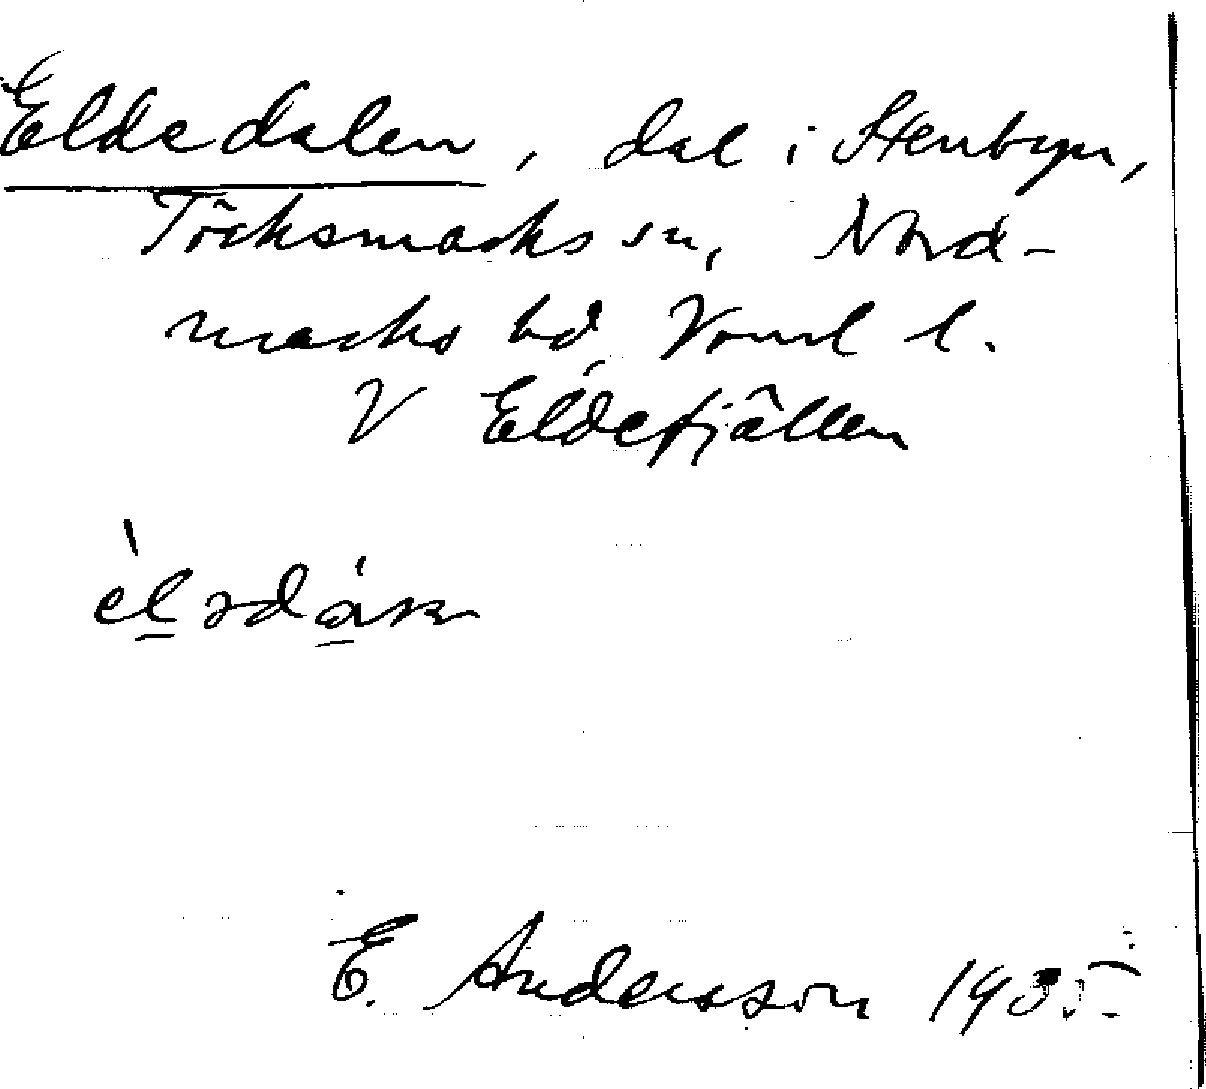 Eldedalen, dal i Stenbyn,
Töcksmarks sn, Nord-
marks hd, Värml l.
V Eldefjällen
E. Andersson 1935